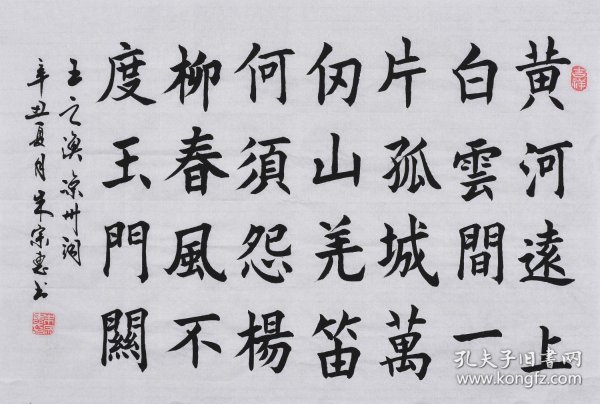 黃河遠上
白雲間一
片孤城萬
仞山羌笛
何須怨楊
柳春風不
度玉門關
王之渙涼州詞
辛丑夏月朱宗惠书
孔夫子旧书网
www.kongfz.com